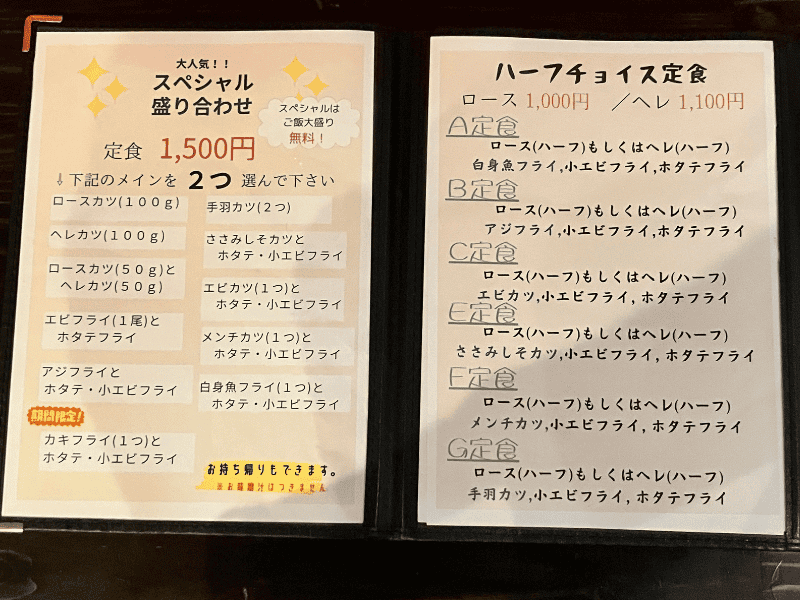 大人気！！
スペシャル
盛り合わせ
スペシャルは
ご飯大盛り
無料！
定食 1,500円
⇓下記のメインを 2つ 選んで下さい
ロースカツ(１００ｇ)
ヘレカツ(１００ｇ)
ロースカツ(５０ｇ)と
ヘレカツ(５０ｇ)
エビフライ(１尾)と
ホタテフライ
アジフライと
ホタテ・小エビフライ
期間限定！
カキフライ(１つ)と
ホタテ・小エビフライ
手羽カツ(２つ)
ささみしそカツと
ホタテ・小エビフライ
エビカツ(１つ)と
ホタテ・小エビフライ
メンチカツ(１つ)と
ホタテ・小エビフライ
白身魚フライ(１つ)と
ホタテ・小エビフライ
お持ち帰りもできます。
※お味噌汁はつきません
ハーフチョイス定食
ロース 1,000円 ／ヘレ 1,100円
A定食
ロース(ハーフ)もしくはヘレ(ハーフ)
白身魚フライ,小エビフライ,ホタテフライ
B定食
ロース(ハーフ)もしくはヘレ(ハーフ)
アジフライ,小エビフライ,ホタテフライ
C定食
ロース(ハーフ)もしくはヘレ(ハーフ)
エビカツ,小エビフライ, ホタテフライ
E定食
ロース(ハーフ)もしくはヘレ(ハーフ)
ささみしそカツ,小エビフライ, ホタテフライ
F定食
ロース(ハーフ)もしくはヘレ(ハーフ)
メンチカツ,小エビフライ, ホタテフライ
G定食
ロース(ハーフ)もしくはヘレ(ハーフ)
手羽カツ,小エビフライ, ホタテフライ